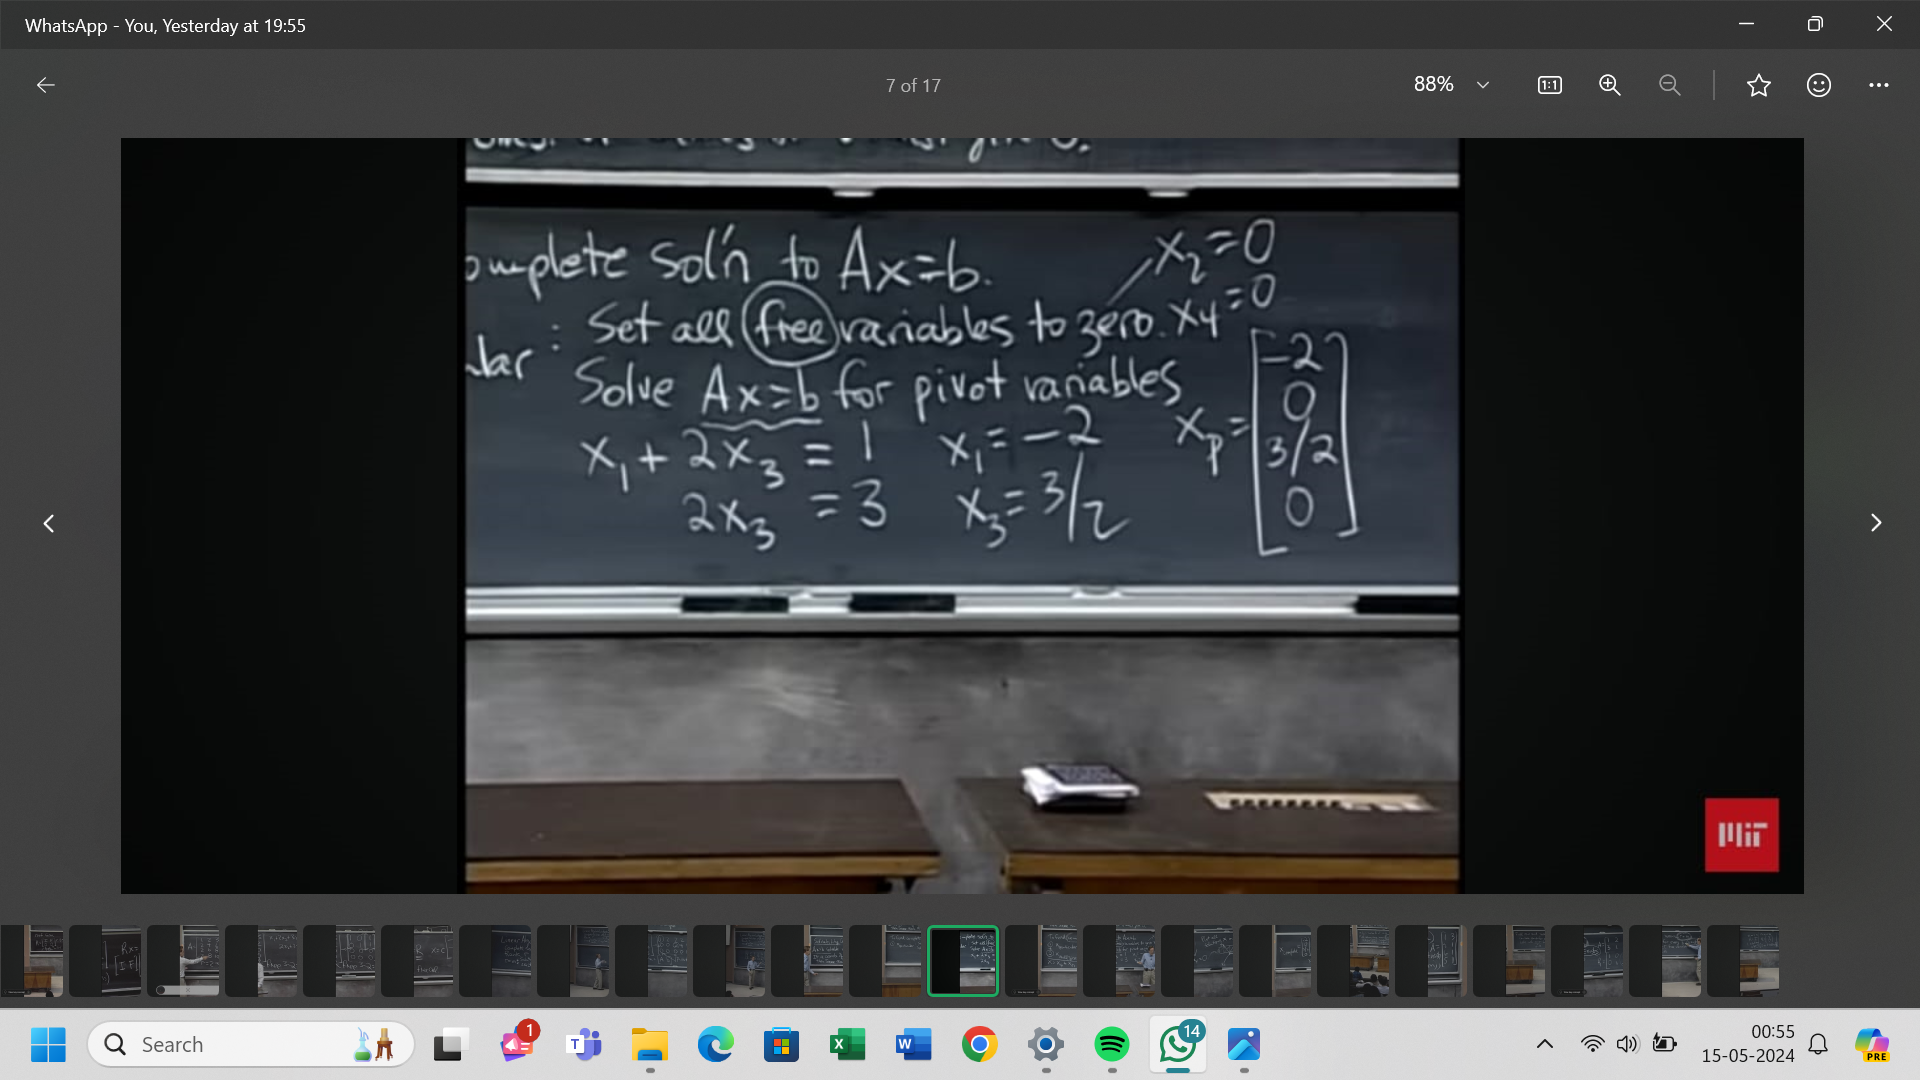 WhatsApp - You, Yesterday at 19:55
7 of 17
88%
1:1
omplete sol'n to Ax=b.
x₂=0
x₄=0
lar : Set all free variables to zero.
Solve Ax=b for pivot variables
x₁ + 2x₃ = 1
2x₃ = 3
x₁ = -2
x₃ = 3/2
xₚ = [-2
0
3/2
0]
MIT
Search
1
14
00:55
15-05-2024
PRE